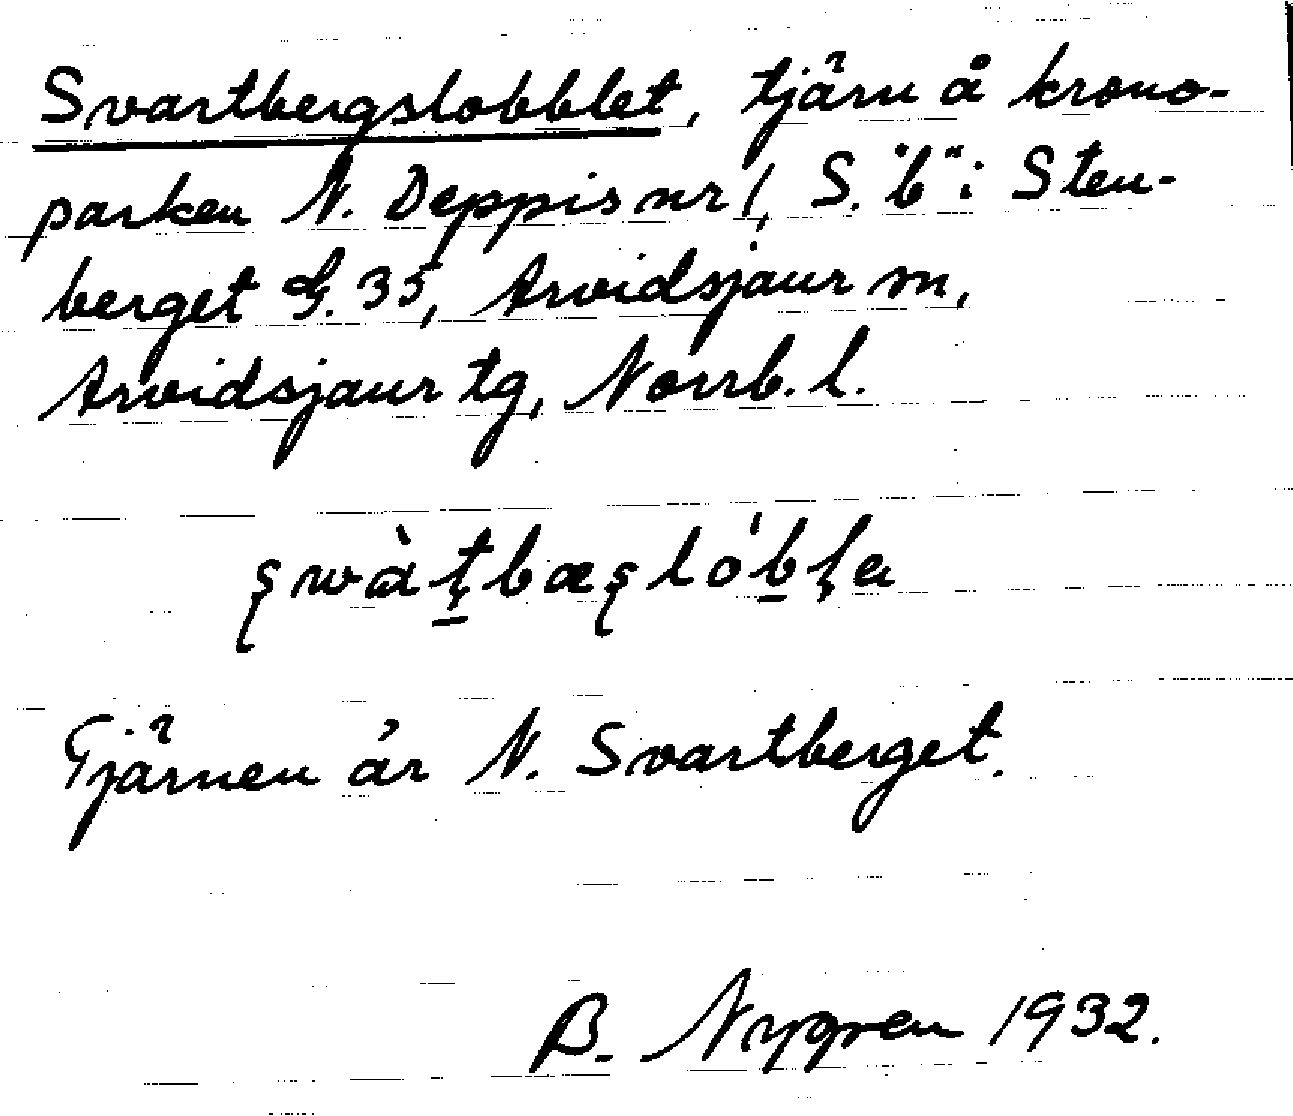 Svartbergslobblet, tjärn å krono-
parken N. Deppis nr 1, S. "b" i Sten-
berget G. 35, Arvidsjaur sn,
Arvidsjaur tg, Norrb. l.
Tjärnen är N. Svartberget.
B. Nygren 1932.